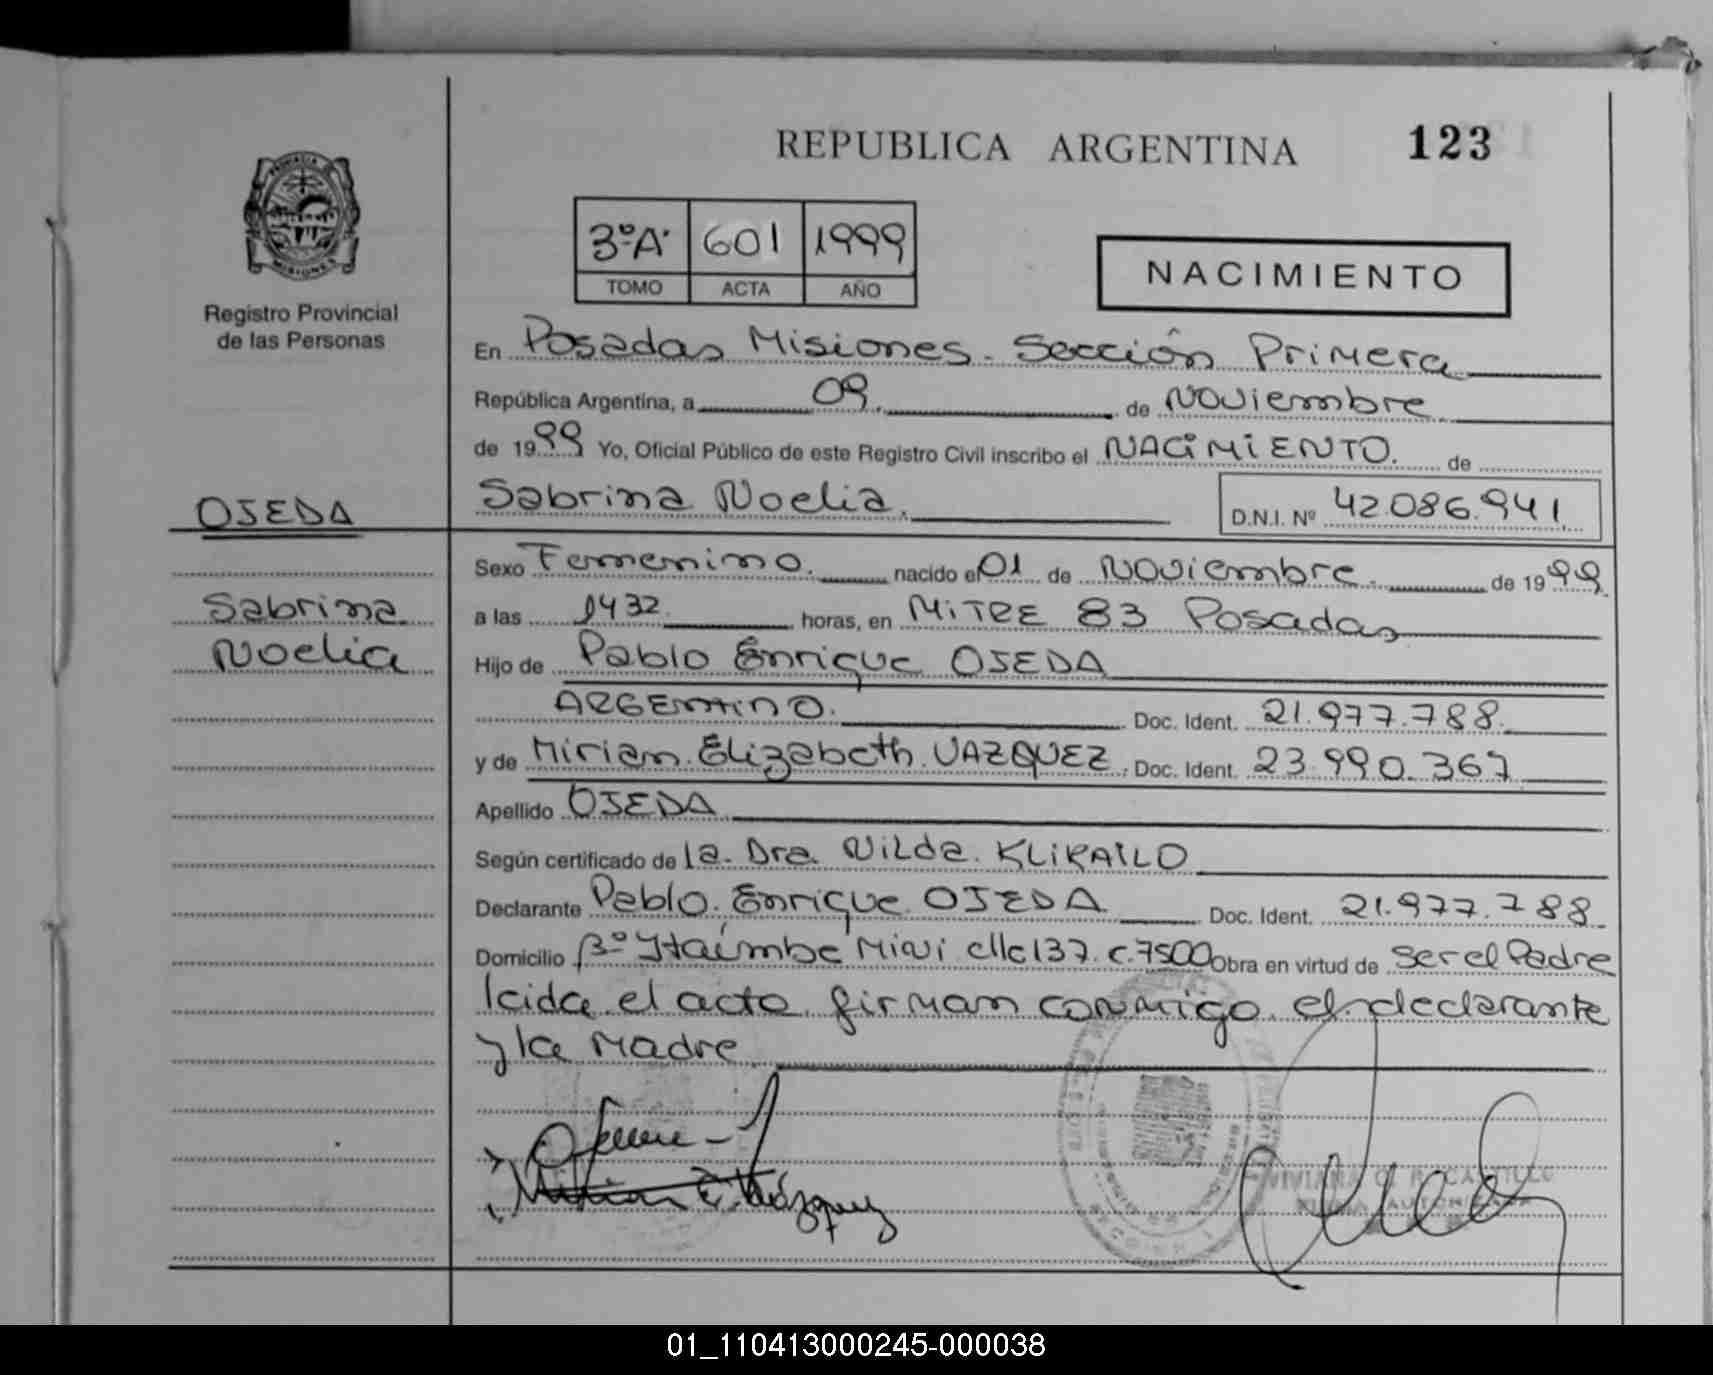 REPUBLICA ARGENTINA 123
MISIONES
Registro Provincial
de las Personas
3º A 601 1999
TOMO ACTA AÑO
NACIMIENTO
En Posadas Misiones. Sección Primera
República Argentina, a 09. de Noviembre
de 1999 Yo, Oficial Público de este Registro Civil inscribo el NACIMIENTO. de
OJEDA
Sabrina Noelia. D.N.I. Nº 42.086.941
Sexo Femenino. nacido el 01 de Noviembre. de 1999
Sabrina
a las 1432 horas, en MITRE 83 Posadas
Noelia
Hijo de Pablo Enrique OJEDA
ARGENTINO. Doc. Ident. 21.977.788.
y de Miriam Elizabeth VAZQUEZ. Doc. Ident. 23.990.367
Apellido OJEDA
Según certificado de la Dra Nilda
Declarante Pablo Enrique OJEDA Doc. Ident. 21.977.788
Domicilio Bº Itaimbe Mini clle 137 c.7500 Obra en virtud de ser el Padre
leida el acta firman conmigo el declarante
y la Madre
Vázquez
CASTILLO
FIRMA AUTORIZADA
01_110413000245-000038